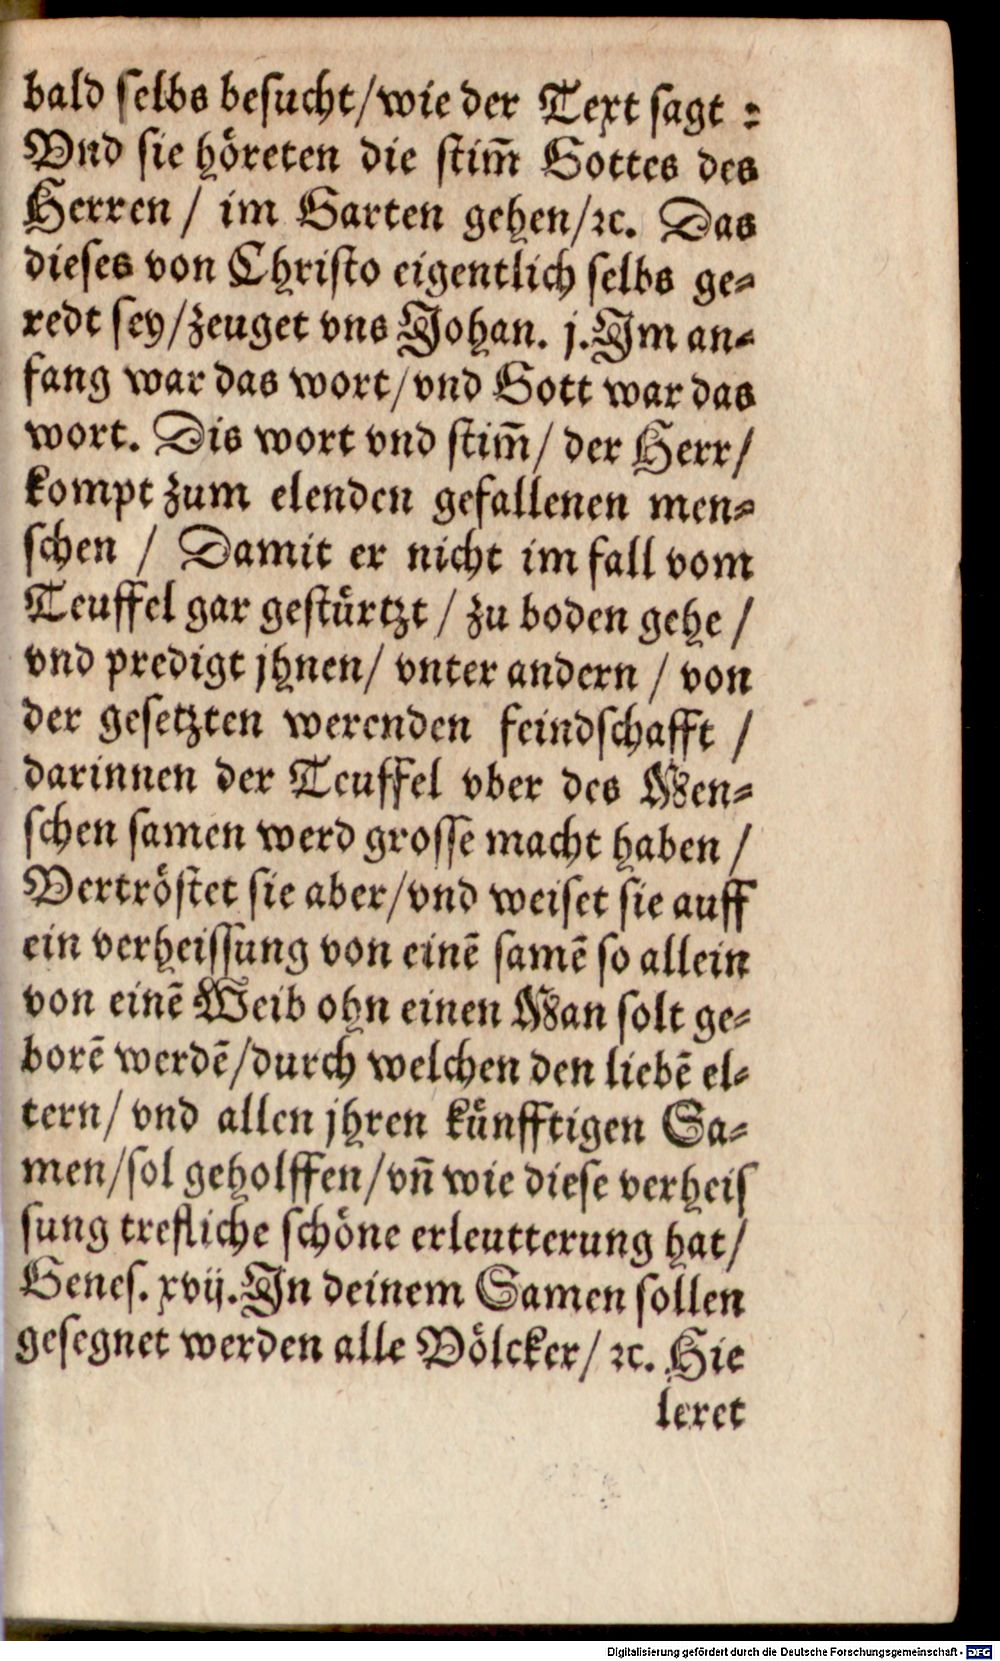 bald selbs besucht/wie der Text sagt :
Vnd sie höreten die stim̃ Gottes des
Herren / im Garten gehen/ꝛc. Das
dieses von Christo eigentlich selbs ge⸗
redt sey/zeuget vns Johan. j. Im an⸗
fang war das wort/vnd Gott war das
wort. Dis wort vnd stim̃/ der Herr/
kompt zum elenden gefallenen men⸗
schen / Damit er nicht im fall vom
Teuffel gar gestürtzt / zu boden gehe /
vnd predigt jhnen/ vnter andern / von
der gesetzten werenden feindschafft /
darinnen der Teuffel vber des Men⸗
schen samen werd grosse macht haben /
Vertröstet sie aber/vnd weiset sie auff
ein verheissung von einē samē so allein
von einē Weib ohn einen Man solt ge⸗
borē werdē/durch welchen den liebē el⸗
tern/ vnd allen jhren künfftigen Sa⸗
men/sol geholffen/vn̄ wie diese verheis
sung trefliche schöne erleutterung hat/
Genes. xvij. In deinem Samen sollen
gesegnet werden alle Völcker/ ꝛc. Hie
leret
Digitalisierung gefördert durch die Deutsche Forschungsgemeinschaft - DFG